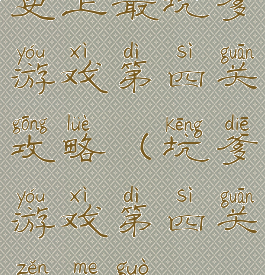 史上最坑爹
yóu xì dì sì guān
游戏第四关
gōng lüè kēng diē
攻略（坑爹
yóu xì dì sì guān
游戏第四关
zěn me guò